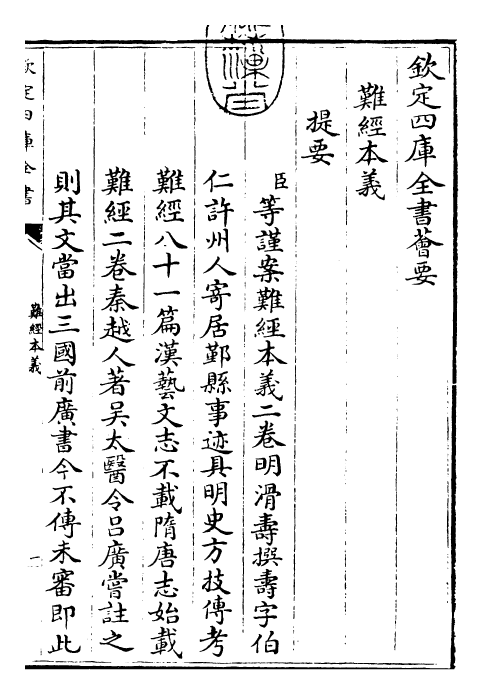 欽定四庫全書薈要
難經本義
提要
臣等謹案難經本義二卷明滑壽撰壽字伯
仁許州人寄居鄞縣事迹具明史方技傳考
難經八十一篇漢藝文志不載隋唐志始載
難經二卷秦越人著吳太醫令呂廣嘗註之
則其文當出三國前廣書今不傳未審即此
欽定四庫全書
難經本義
一